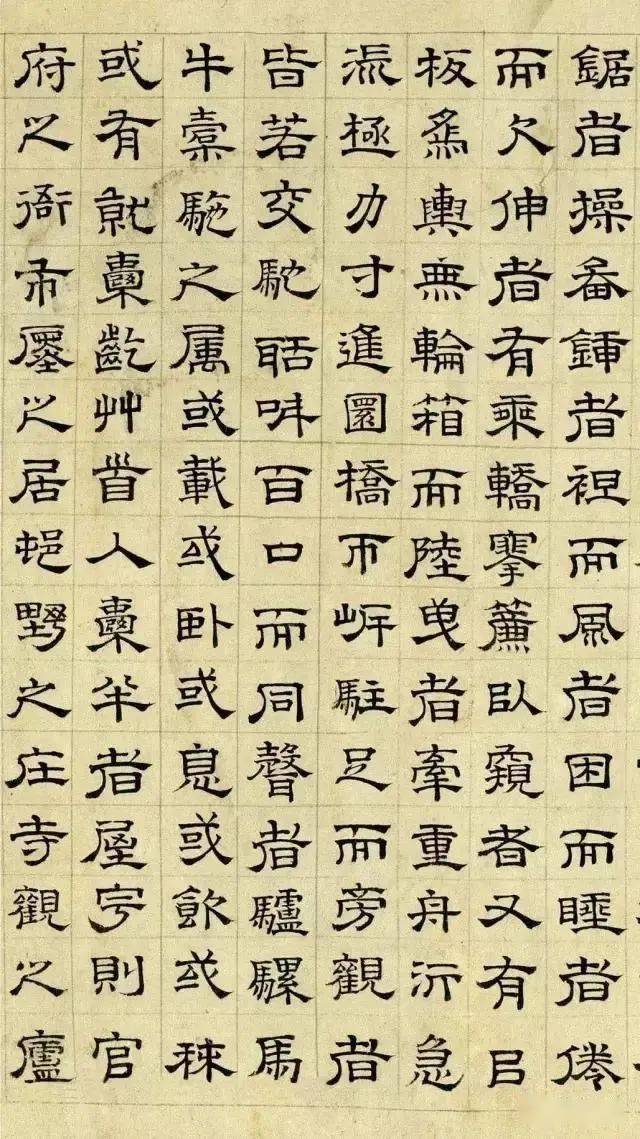 鋸者操畚鍤者袒而風者困而睡者倦
而欠伸者有乘轎搴簾㠯窺者又有㠯
板爲輿無輪箱而陸曳者牽重舟泝急
流極力寸進圜橋匝岸駐足而旁觀者
皆若交馳聒呶百口而同聲者驢騾馬
牛橐駞之属或載或卧或息或飲或秣
或有就橐齕艸首入橐半者屋宇則官
府之衙市廛之居邨野之庄寺觀之廬